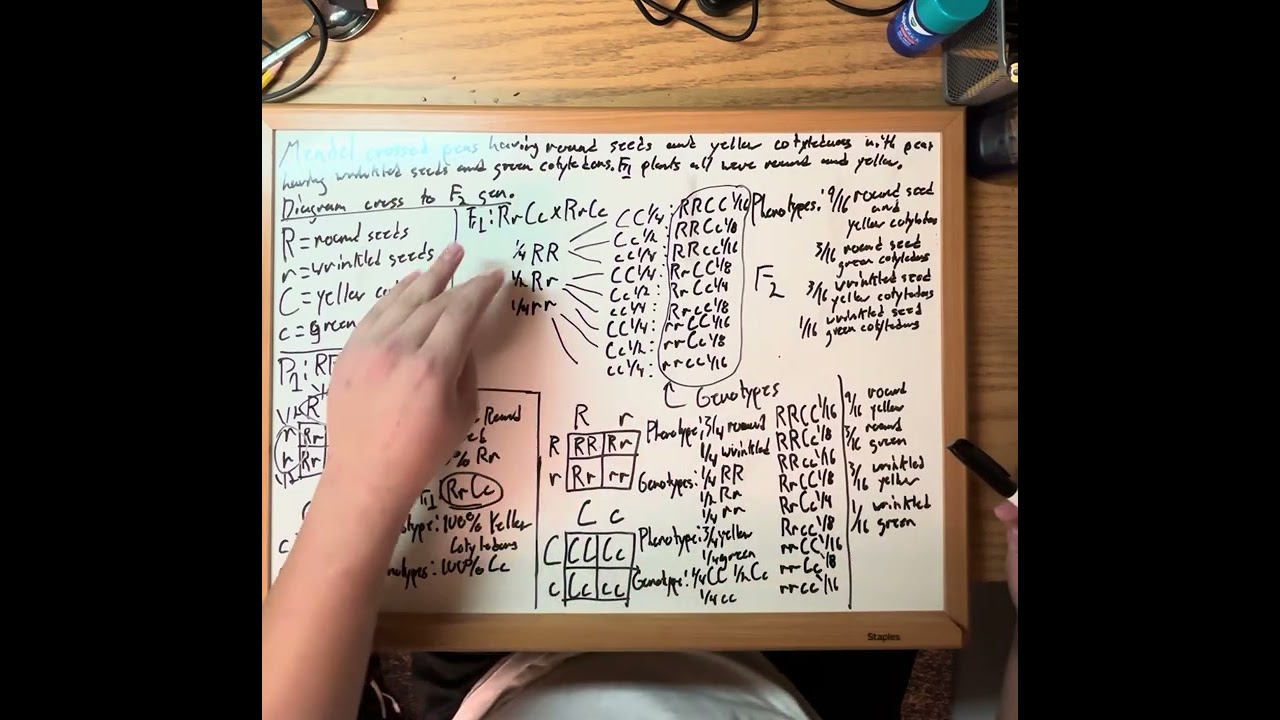 Mendel crossed peas having round seeds and yellow cotyledons with peas
having wrinkled seeds and green cotyledons. F1 plants all were round and yellow.
Diagram cross to F2 gen.
R = round seeds
r = wrinkled seeds
C = yellow
c = green
P1: RR
R
r Rr
r Rr
c
Round
% Rr
F1 RrCc
otype: 100% Yellow
Cotyledons
notypes: 100% Cc
F1: RrCc x RrCc
1/4 RR
1/2 Rr
1/4 rr
CC 1/4: RRCC 1/16
Cc 1/2: RRCc 1/8
cc 1/4: RRcc 1/16
CC 1/4: RrCC 1/8
Cc 1/2: RrCc 1/4
cc 1/4: Rrcc 1/8
CC 1/4: rrCC 1/16
Cc 1/2: rrCc 1/8
cc 1/4: rrcc 1/16
Genotypes
F2
Phenotypes: 9/16 round seed
and
yellow cotyledons
3/16 round seed
green cotyledons
3/16 wrinkled seed
yellow cotyledons
1/16 wrinkled seed
green cotyledons
R r
R RR Rr
r Rr rr
Phenotype: 3/4 round
1/4 wrinkled
Genotypes: 1/4 RR
1/2 Rr
1/4 rr
C c
C CC Cc
c Cc cc
Phenotype: 3/4 yellow
1/4 green
Genotype: 1/4 CC 1/2 Cc
1/4 cc
RRCC 1/16
RRCc 1/8
RRcc 1/16
RrCC 1/8
RrCc 1/4
Rrcc 1/8
rrCC 1/16
rrCc 1/8
rrcc 1/16
9/16 round
yellow
3/16 round
green
3/16 wrinkled
yellow
1/16 wrinkled
green
Staples